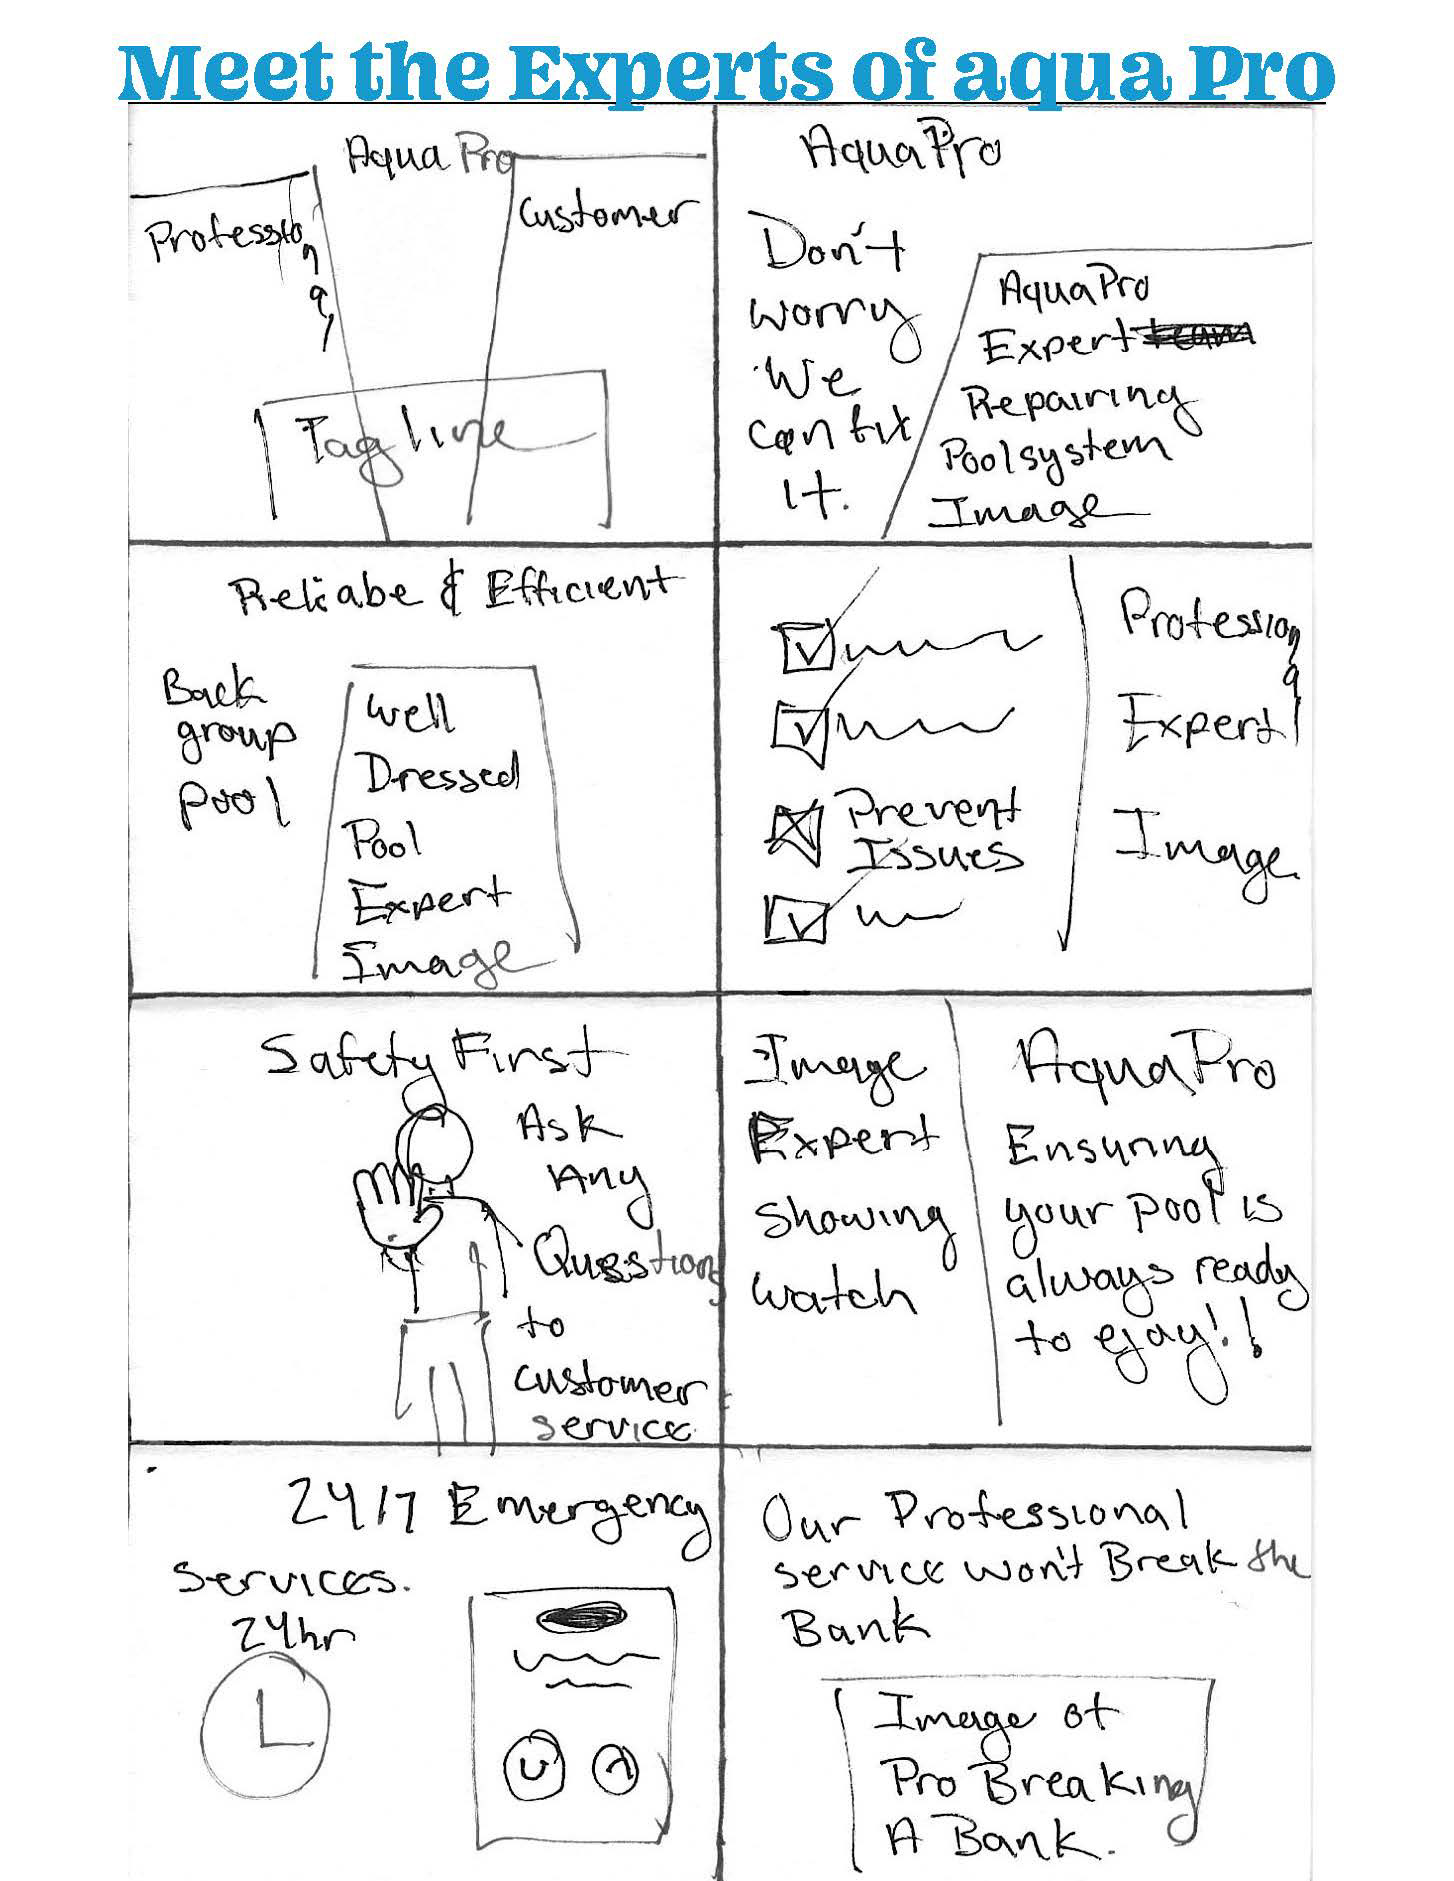 Meet the Experts of aqua Pro
Aqua Pro
Professional
Customer
Tag line
AquaPro
Don't
worry
We
can fix
it.
AquaPro
Expert
Repairing
Poolsystem
Image
Reliabe & Efficient
Back
group
pool
Well
Dressed
Pool
Expert
Image
Prevent
Issues
Professional
Expert
Image
Safety First
Ask
Any
Questions
to
customer
service
Image
Expert
showing
watch
AquaPro
Ensuring
your pool is
always ready
to ejay!!
24/7 Emergency
services.
24hr
Our Professional
service won't Break the
Bank
Image of
Pro Breaking
A Bank.